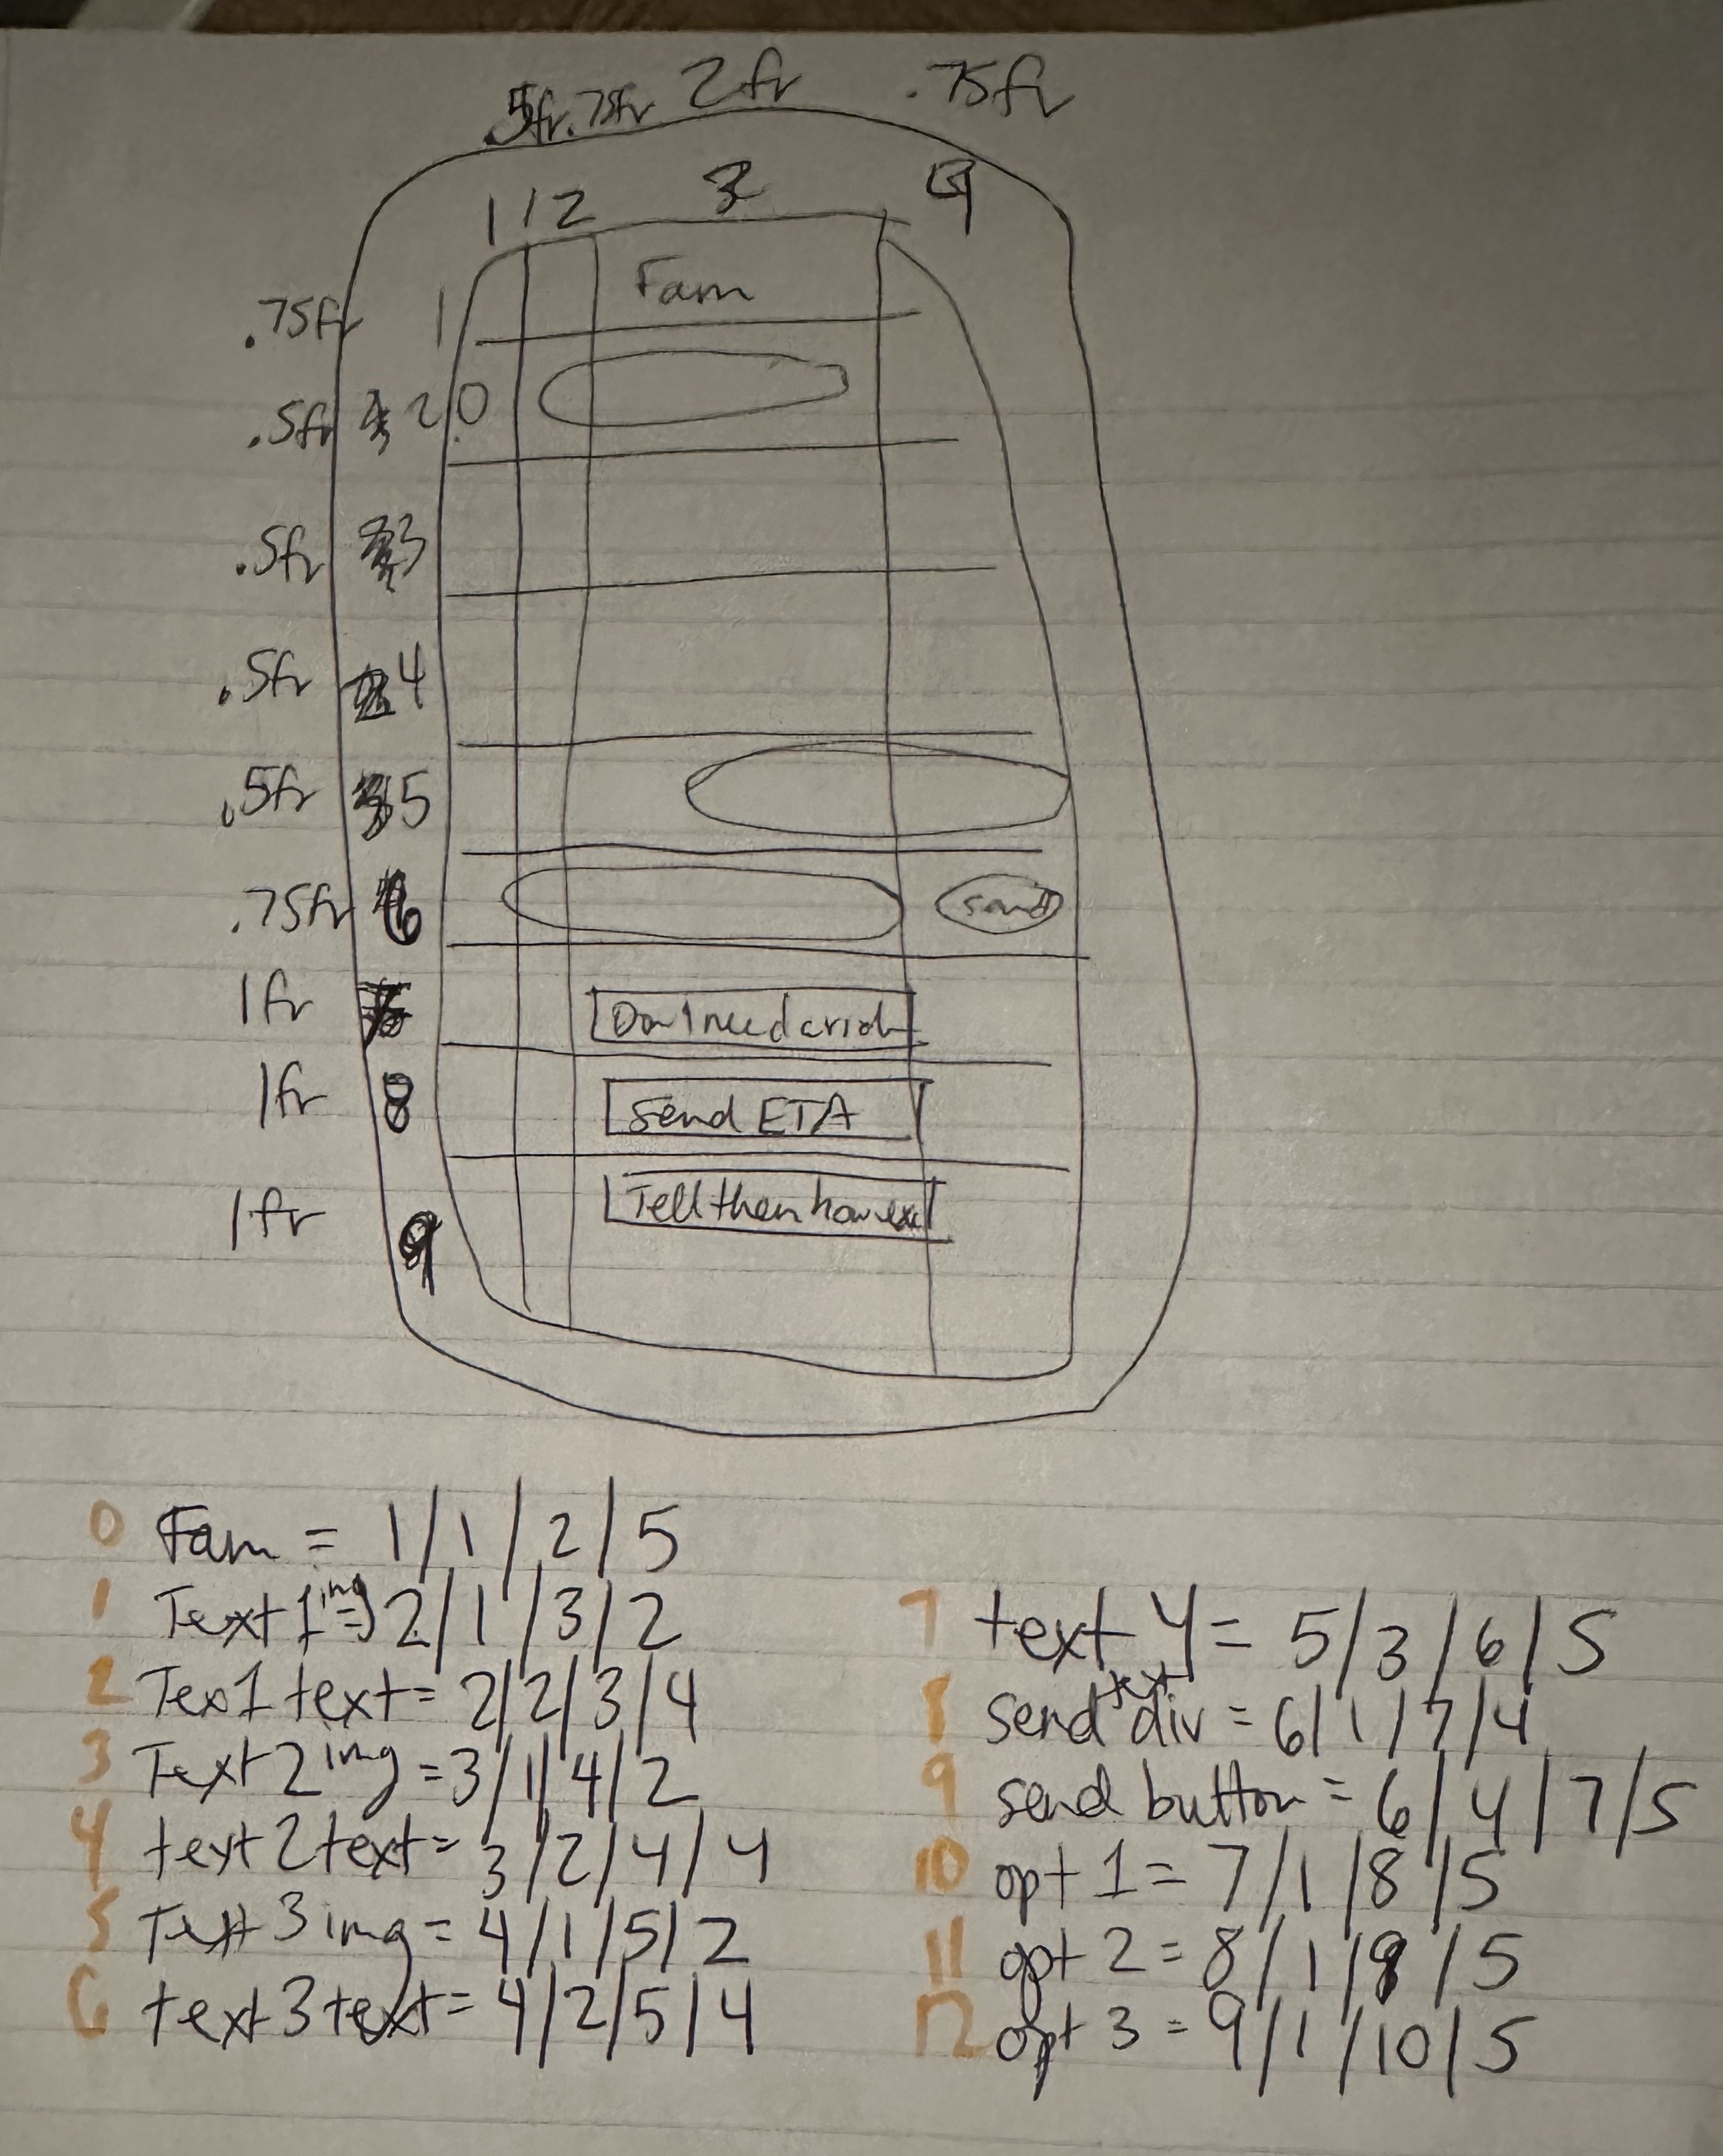 .5fr .75fr 2fr .75fr
1 2 3 4
.75fr 1 Fam
.5fr 2
.5fr 3
.5fr 4
.5fr 5
.75fr 6 send
1fr Don't need a ride
1fr 8 Send ETA
1fr 9 Tell them how
0 Fam = 1/1/2/5
1 Text 1 img = 2/1/3/2
2 Tex1 text = 2/2/3/4
3 Text 2 img = 3/1/4/2
4 text 2 text = 3/2/4/4
5 Text 3 img = 4/1/5/2
6 text 3 text = 4/2/5/4
7 text 4 = 5/3/6/5
8 send text div = 6/1/7/4
9 send button = 6/4/7/5
10 opt 1 = 7/1/8/5
11 opt 2 = 8/1/9/5
12 opt 3 = 9/1/10/5